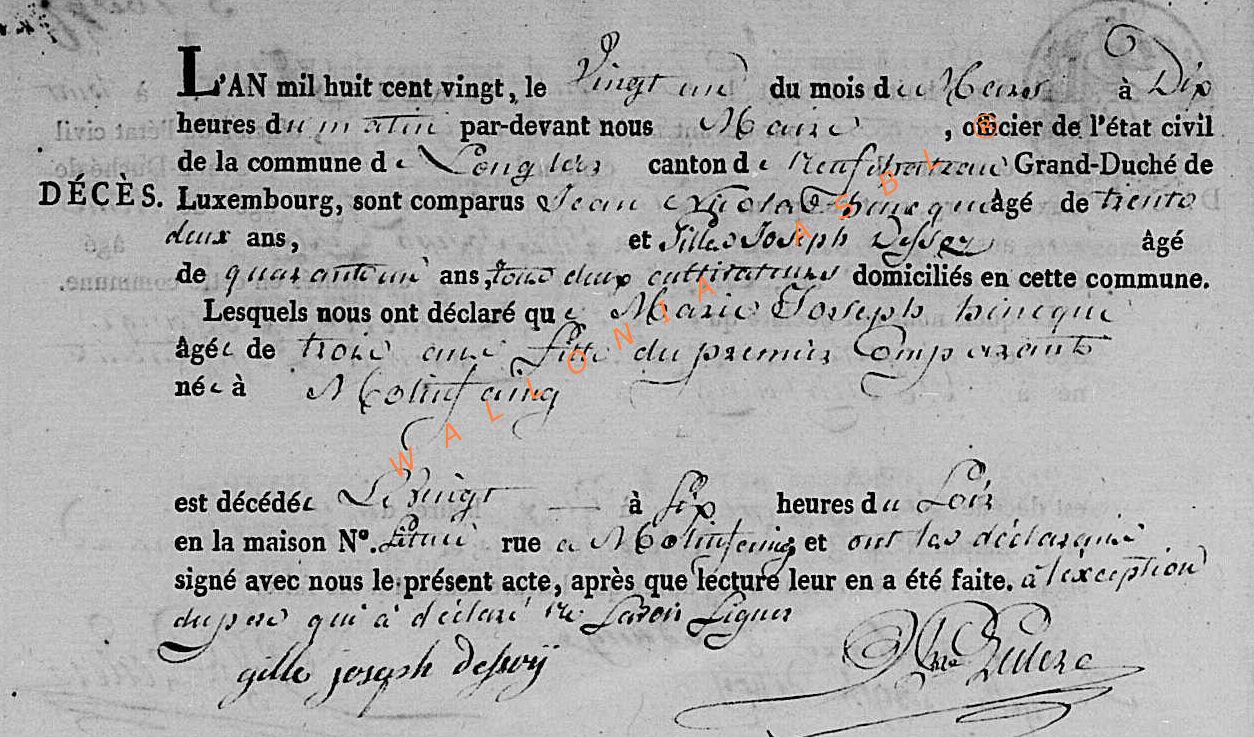 L'AN mil huit cent vingt, le Vingt un du mois de Mars à Dix
heures du matin par-devant nous Maire, officier de l'état civil
de la commune de Longlier canton de neufchateau Grand-Duché de
DÉCÈS. Luxembourg, sont comparus Jean Nicolas âgé de trente
deux ans, et Gilles Joseph âgé
de quarante un ans, tous deux cultivateurs domiciliés en cette commune.
Lesquels nous ont déclaré que Marie Joseph
âgée de trois ans fille du premier Comparant
née à Molinfaing
est décédée Le vingt à Six heures du Soir
en la maison N°. située rue a Molinfaing et ont les déclarans
signé avec nous le présent acte, après que lecture leur en a été faite. à l'exception
du pere qui à déclaré ne Savoir Signer
gille joseph
WALLONIA ASBL ©